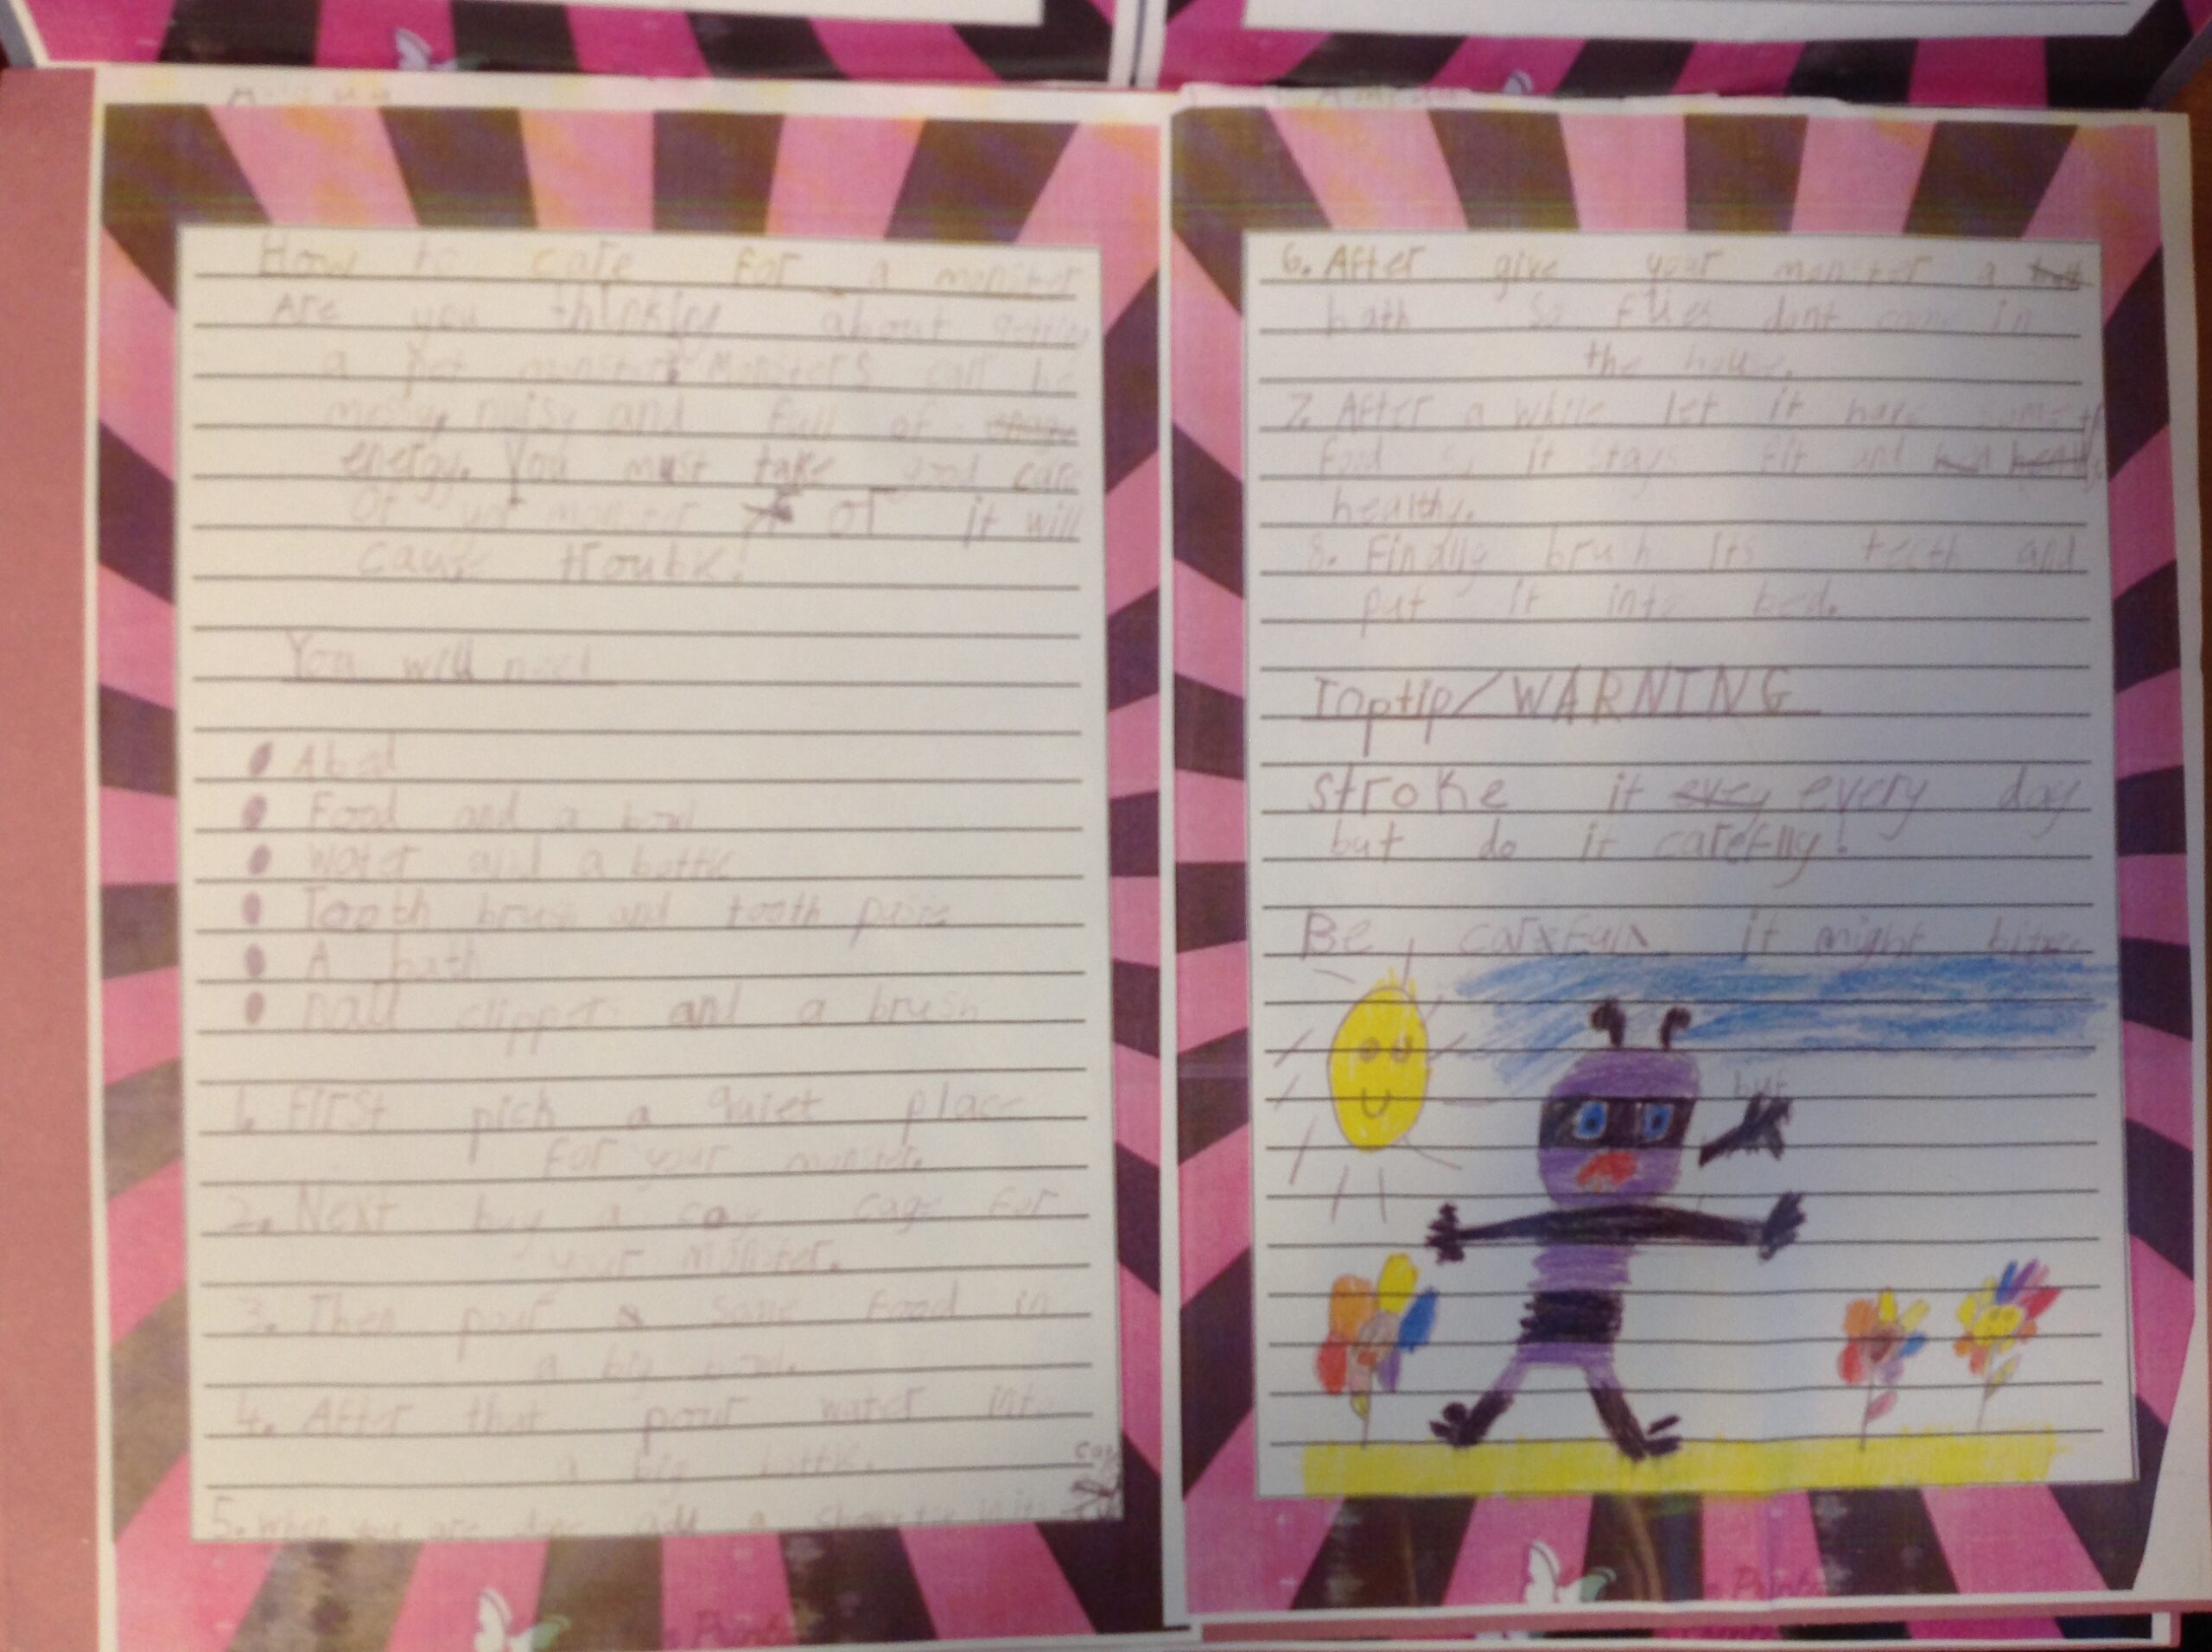 How to care for a monster
Are you thinking about getting
a pet monster? Monsters can be
messy, noisy and full of
energy. You must take good care
of your monster or it will
cause trouble!
You will need
A bed
Food and a bowl
Water and a bottle
Tooth brush and tooth paste
A bath
nail clippers and a brush
1. First pick a quiet place
for your monster.
2. Next buy a cosy cage for
your monster.
3. Then pour some food in
a big bowl.
4. After that pour water into
a big bottle.
5. When you are done add a
6. After give your monster a
bath so flies dont come in
the house.
7. After a while let it have some
food so it stays fit and
healthy.
8. Finally brush its teeth and
put it into bed.
Toptip/WARNING
Stroke it evey every day
but do it careflly!
Be it might bite
but